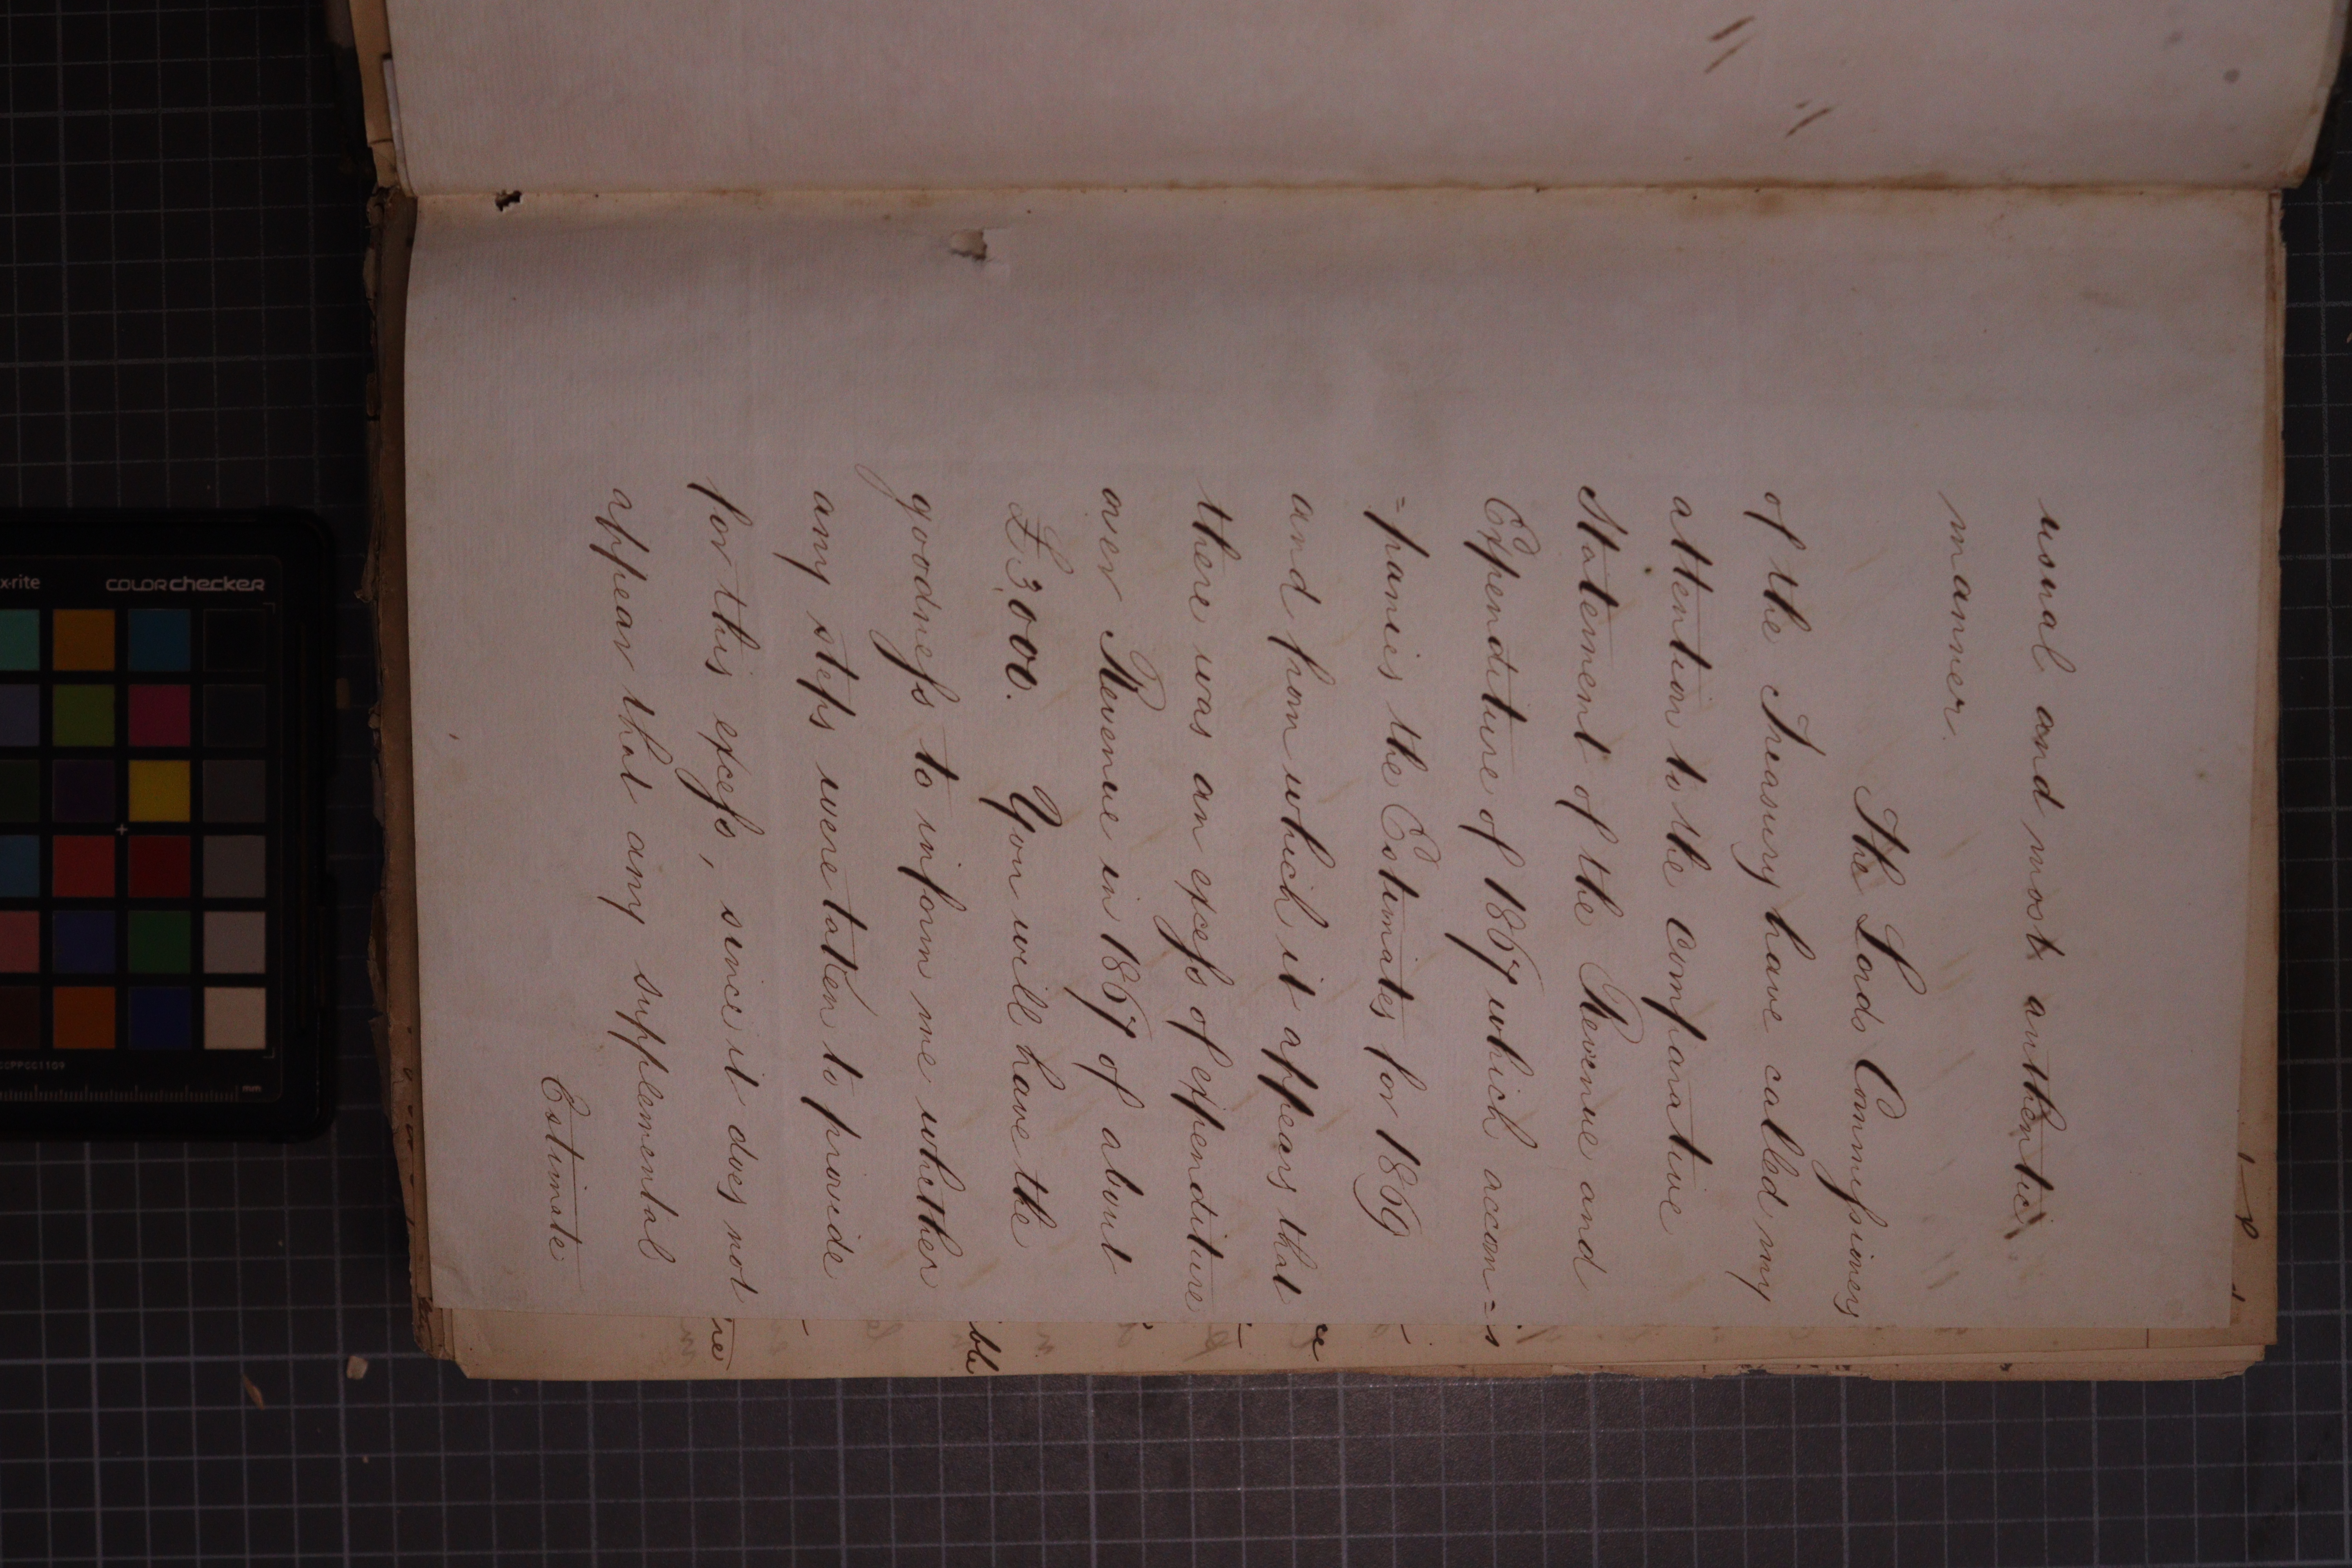 usual and most authentic
manner.
The Lords Commissioners
of the Treasury have called my
attention to the comparative
statement of the Revenue and
Expenditure of 1867 which accom=
=panies the Estimates for 1869
and from which it appears that
there was an excess of expenditure
over Revenue in 1867 of about
£3,000. You will have the
goodness to inform me whether
any steps were taken to provide
for this excess, since it does not
appear that any supplemental
Estimate
ce
ble
re
x-rite
colorchecker
mm